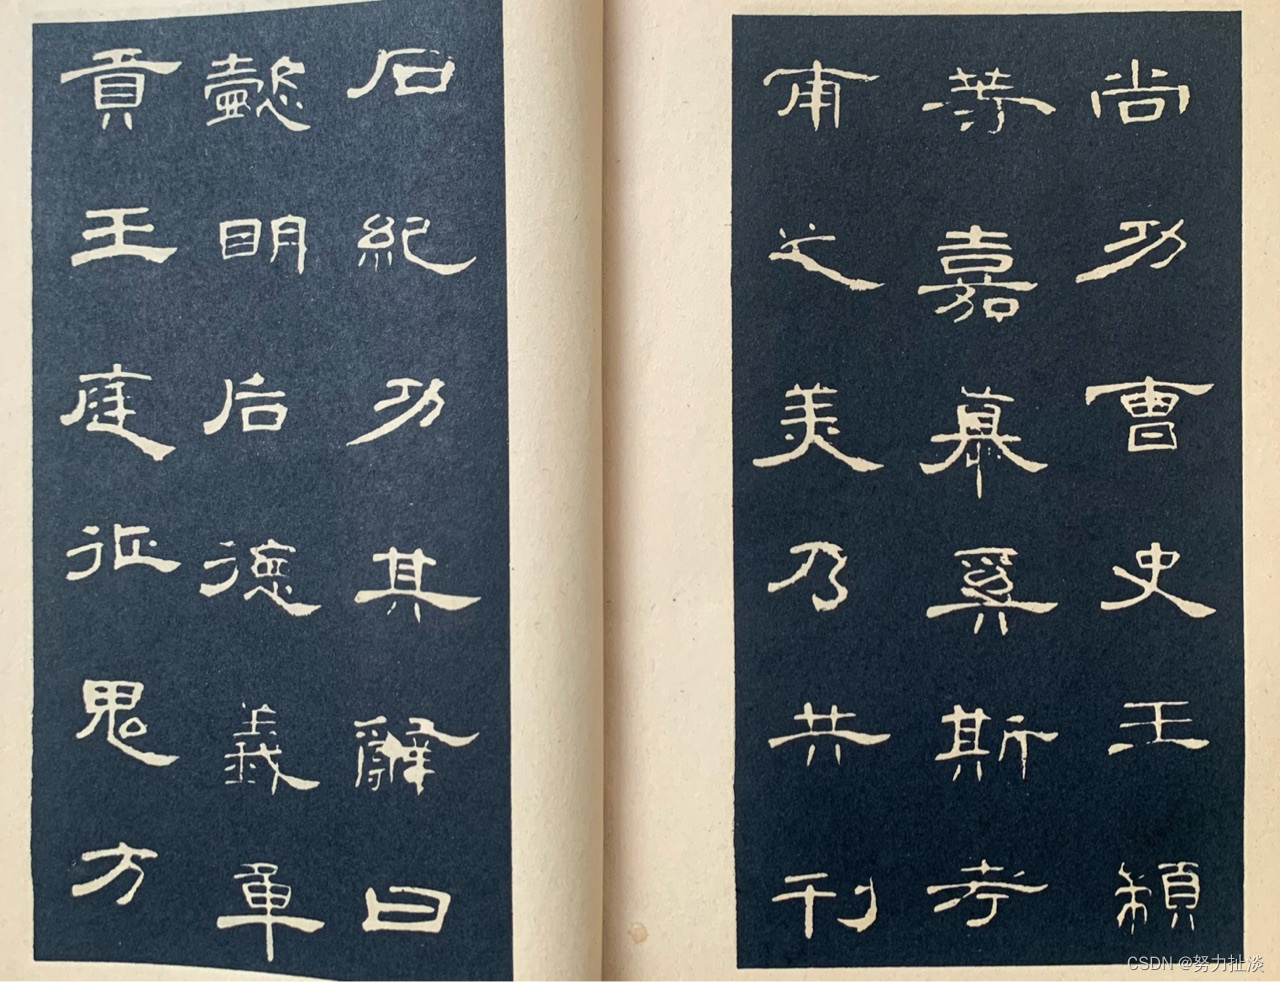 尚功曹史王顓
等嘉慕奚斯考
甫之美乃共刊
石紀功其辭曰
懿明后德義章
貢王庭征鬼方
CSDN @努力扯淡